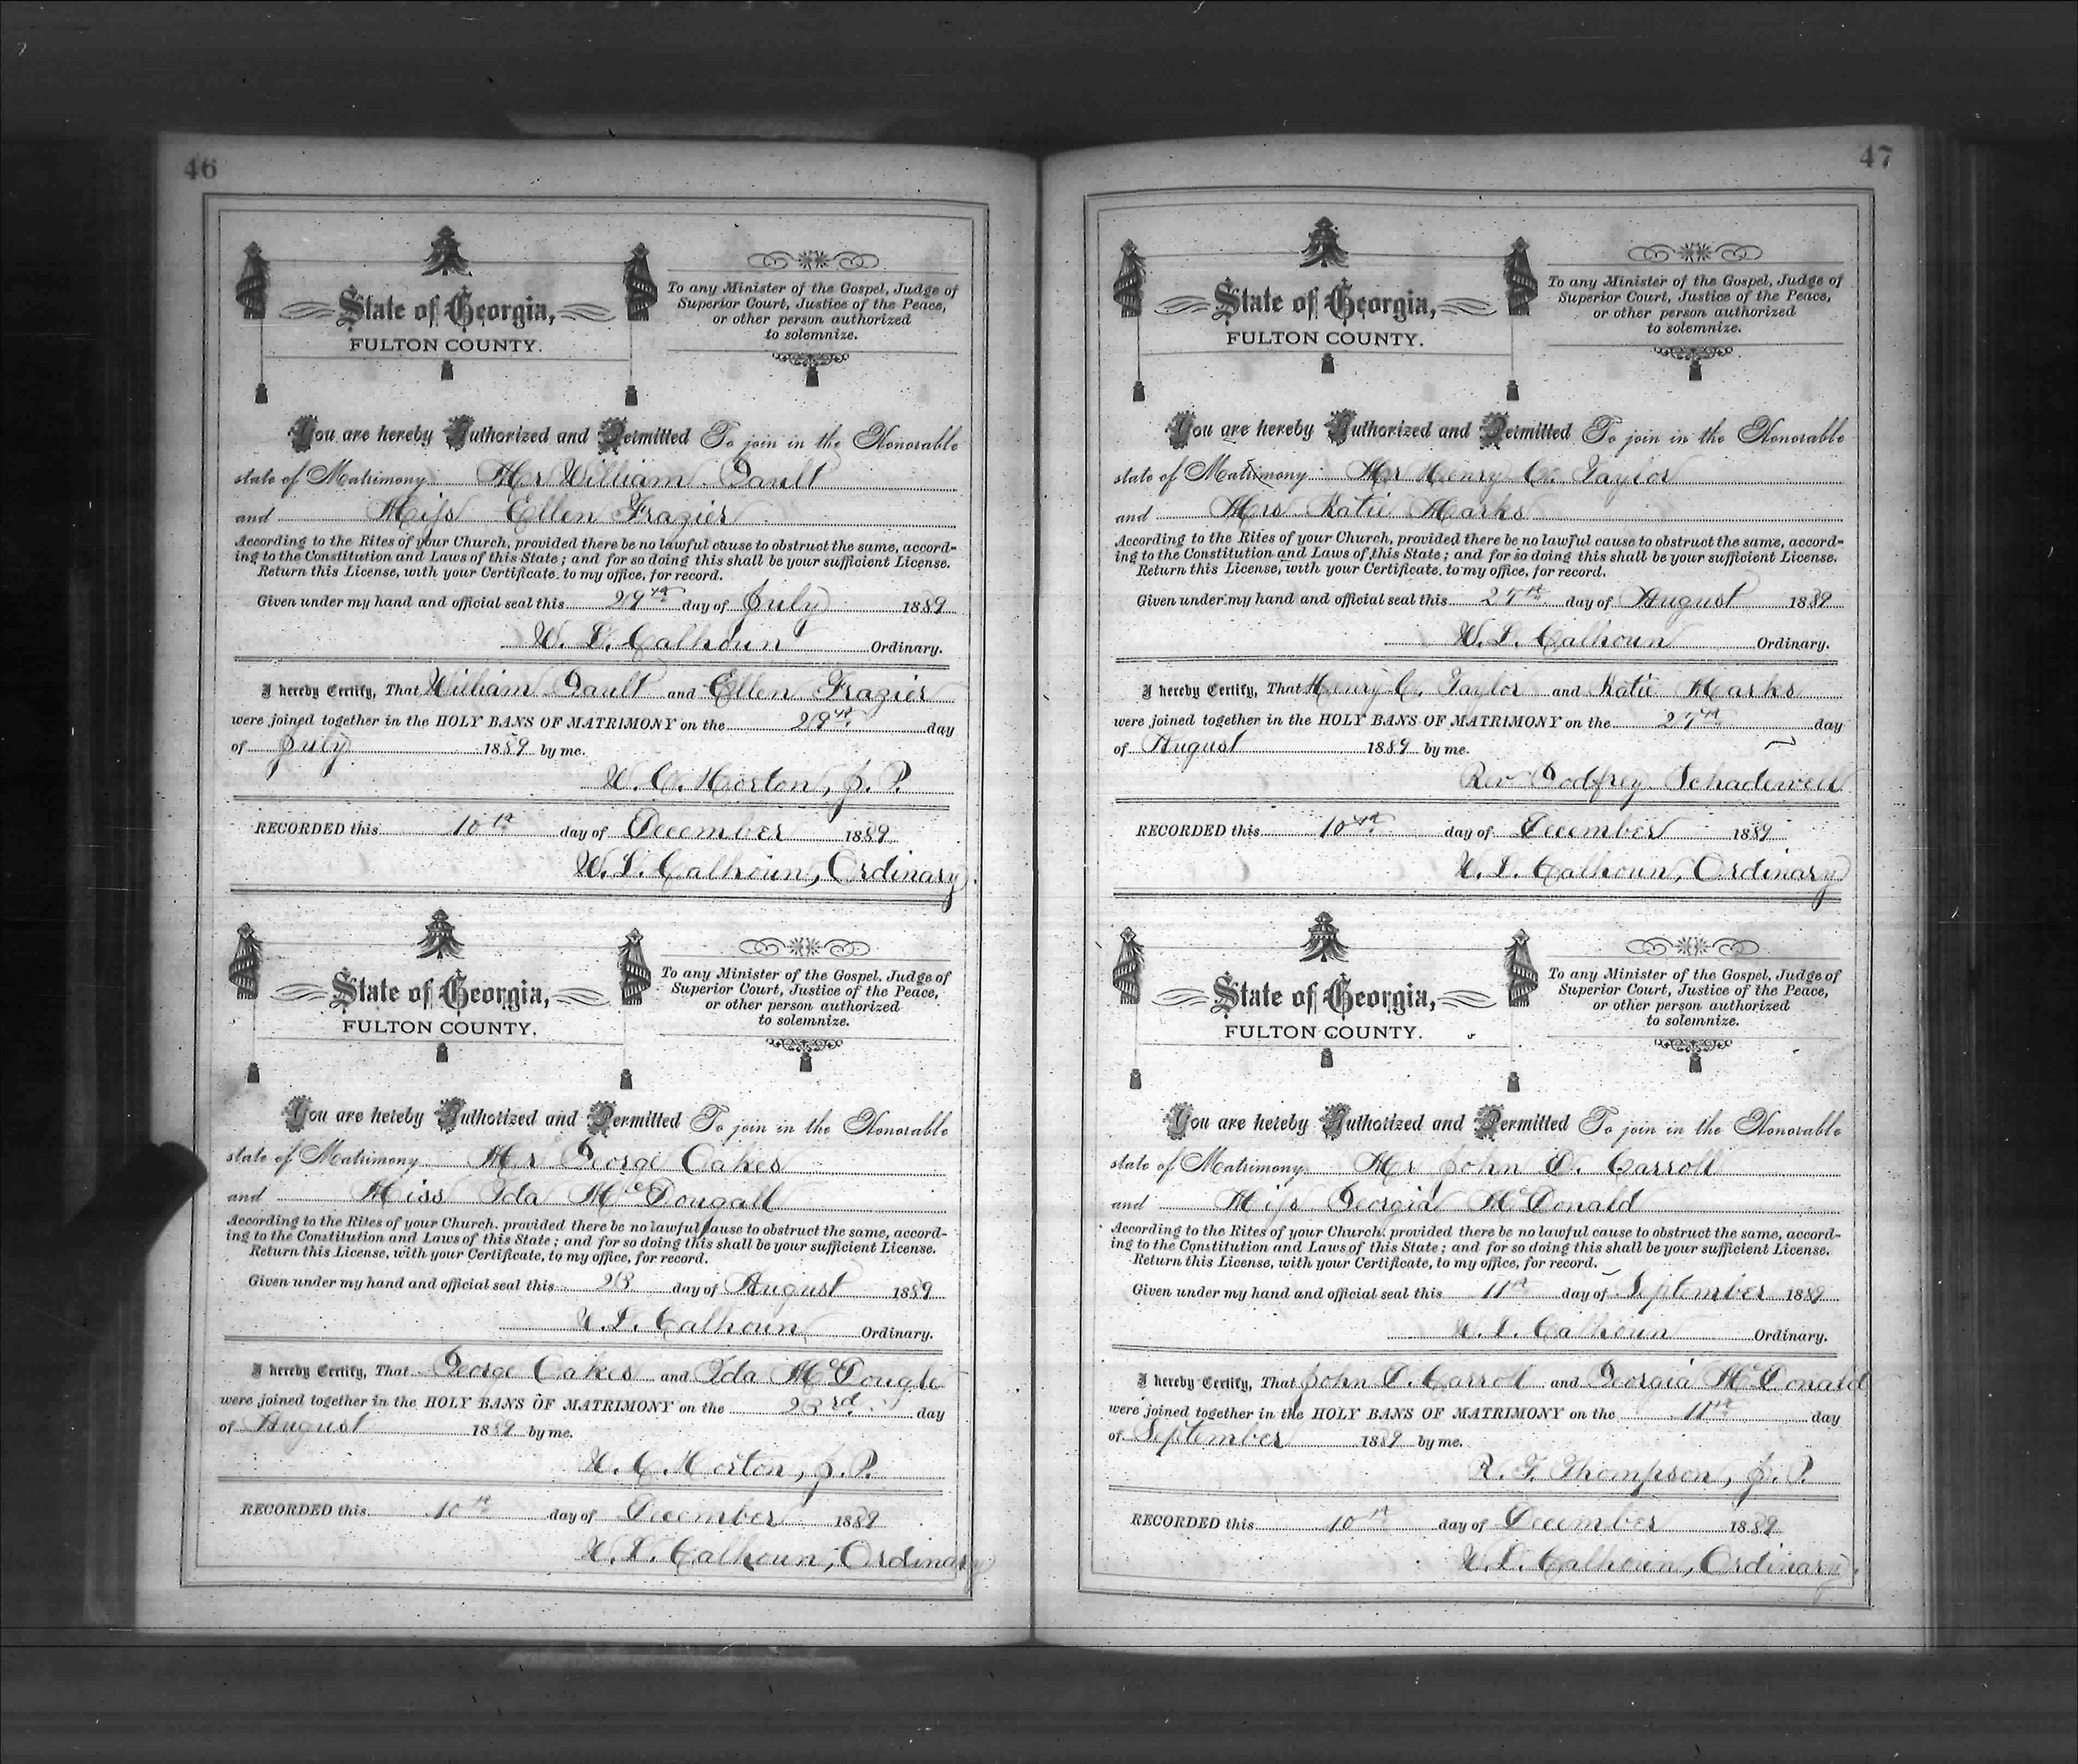 46
State of Georgia,
FULTON COUNTY.
To any Minister of the Gospel, Judge of
Superior Court, Justice of the Peace,
or other person authorized
to solemnize.
You are hereby Authorized and Permitted To join in the Honorable
state of Matrimony Mr William Gault
and Miss Ellen Frazier
According to the Rites of your Church, provided there be no lawful cause to obstruct the same, accord-
ing to the Constitution and Laws of this State; and for so doing this shall be your sufficient License.
Return this License, with your Certificate, to my office, for record.
Given under my hand and official seal this 29th day of July 1889
W. L. Calhoun Ordinary.
I hereby Certify, That William Gault and Ellen Frazier
were joined together in the HOLY BANS OF MATRIMONY on the 29th day
of July 1889 by me.
W. C. Horton, J. P.
RECORDED this 10th day of December 1889
W. L. Calhoun, Ordinary
State of Georgia,
FULTON COUNTY.
To any Minister of the Gospel, Judge of
Superior Court, Justice of the Peace,
or other person authorized
to solemnize.
You are hereby Authorized and Permitted To join in the Honorable
state of Matrimony Mr George Oakes
and Miss Ida McDougall
According to the Rites of your Church, provided there be no lawful cause to obstruct the same, accord-
ing to the Constitution and Laws of this State; and for so doing this shall be your sufficient License.
Return this License, with your Certificate, to my office, for record.
Given under my hand and official seal this 23 day of August 1889
W. L. Calhoun Ordinary.
I hereby Certify, That George Oakes and Ida McDougle
were joined together in the HOLY BANS OF MATRIMONY on the 23rd day
of August 1889 by me.
W. C. Horton, J. P.
RECORDED this 10th day of December 1889
W. L. Calhoun, Ordinary
47
State of Georgia,
FULTON COUNTY.
To any Minister of the Gospel, Judge of
Superior Court, Justice of the Peace,
or other person authorized
to solemnize.
You are hereby Authorized and Permitted To join in the Honorable
state of Matrimony Mr Henry C. Taylor
and Mrs Katie Marks
According to the Rites of your Church, provided there be no lawful cause to obstruct the same, accord-
ing to the Constitution and Laws of this State; and for so doing this shall be your sufficient License.
Return this License, with your Certificate, to my office, for record.
Given under my hand and official seal this 27th day of August 1889
W. L. Calhoun Ordinary.
I hereby Certify, That Henry C. Taylor and Katie Marks
were joined together in the HOLY BANS OF MATRIMONY on the 27th day
of August 1889 by me.
Rev Godfrey Schadewell
RECORDED this 10th day of December 1889
W. L. Calhoun, Ordinary
State of Georgia,
FULTON COUNTY.
To any Minister of the Gospel, Judge of
Superior Court, Justice of the Peace,
or other person authorized
to solemnize.
You are hereby Authorized and Permitted To join in the Honorable
state of Matrimony Mr John D. Carroll
and Miss Georgia McDonald
According to the Rites of your Church, provided there be no lawful cause to obstruct the same, accord-
ing to the Constitution and Laws of this State; and for so doing this shall be your sufficient License.
Return this License, with your Certificate, to my office, for record.
Given under my hand and official seal this 11th day of September 1889
W. L. Calhoun Ordinary.
I hereby Certify, That John D. Carroll and Georgia McDonald
were joined together in the HOLY BANS OF MATRIMONY on the 11th day
of September 1889 by me.
R. F. Thompson, J. P.
RECORDED this 10th day of December 1889
W. L. Calhoun, Ordinary